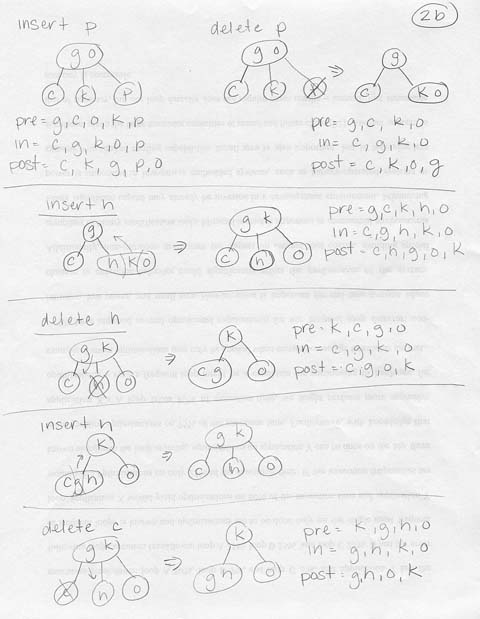 2b
insert p
delete p
g o
c k p
g o
c k x
⇒
g
c k o
pre = g, c, o, k, p
in = c, g, k, o, p
post = c, k, g, p, o
pre = g, c, k, o
in = c, g, k, o
post = c, k, o, g
insert h
g
c h k o
⇒
g k
c h o
pre = g, c, k, h, o
in = c, g, h, k, o
post = c, h, g, o, k
delete h
g k
c h o
⇒
k
c g o
pre = k, c, g, o
in = c, g, k, o
post = c, g, o, k
insert h
k
c g h o
⇒
g k
c h o
delete c
g k
c h o
⇒
k
g h o
pre = k, g, h, o
in = g, h, k, o
post = g, h, o, k